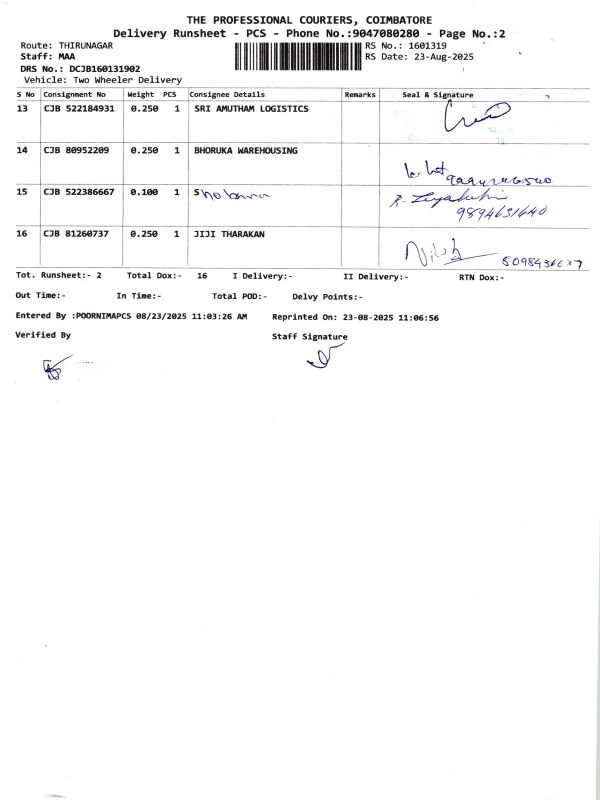 THE PROFESSIONAL COURIERS, COIMBATORE
Delivery Runsheet - PCS - Phone No.:9047080280 - Page No.:2
Route: THIRUNAGAR RS No.: 1601319
Staff: MAA RS Date: 23-Aug-2025
DRS No.: DCJB160131902
Vehicle: Two Wheeler Delivery
S No Consignment No Weight PCS Consignee Details Remarks Seal & Signature
13 CJB 522184931 0.250 1 SRI AMUTHAM LOGISTICS
14 CJB 80952209 0.250 1 BHORUKA WAREHOUSING
15 CJB 522386667 0.100 1 Shobana
9894631640
16 CJB 81260737 0.250 1 JIJI THARAKAN
Tot. Runsheet:- 2 Total Dox:- 16 I Delivery:- II Delivery:- RTN Dox:-
Out Time:- In Time:- Total POD:- Delvy Points:-
Entered By :POORNIMAPCS 08/23/2025 11:03:26 AM Reprinted On: 23-08-2025 11:06:56
Verified By Staff Signature